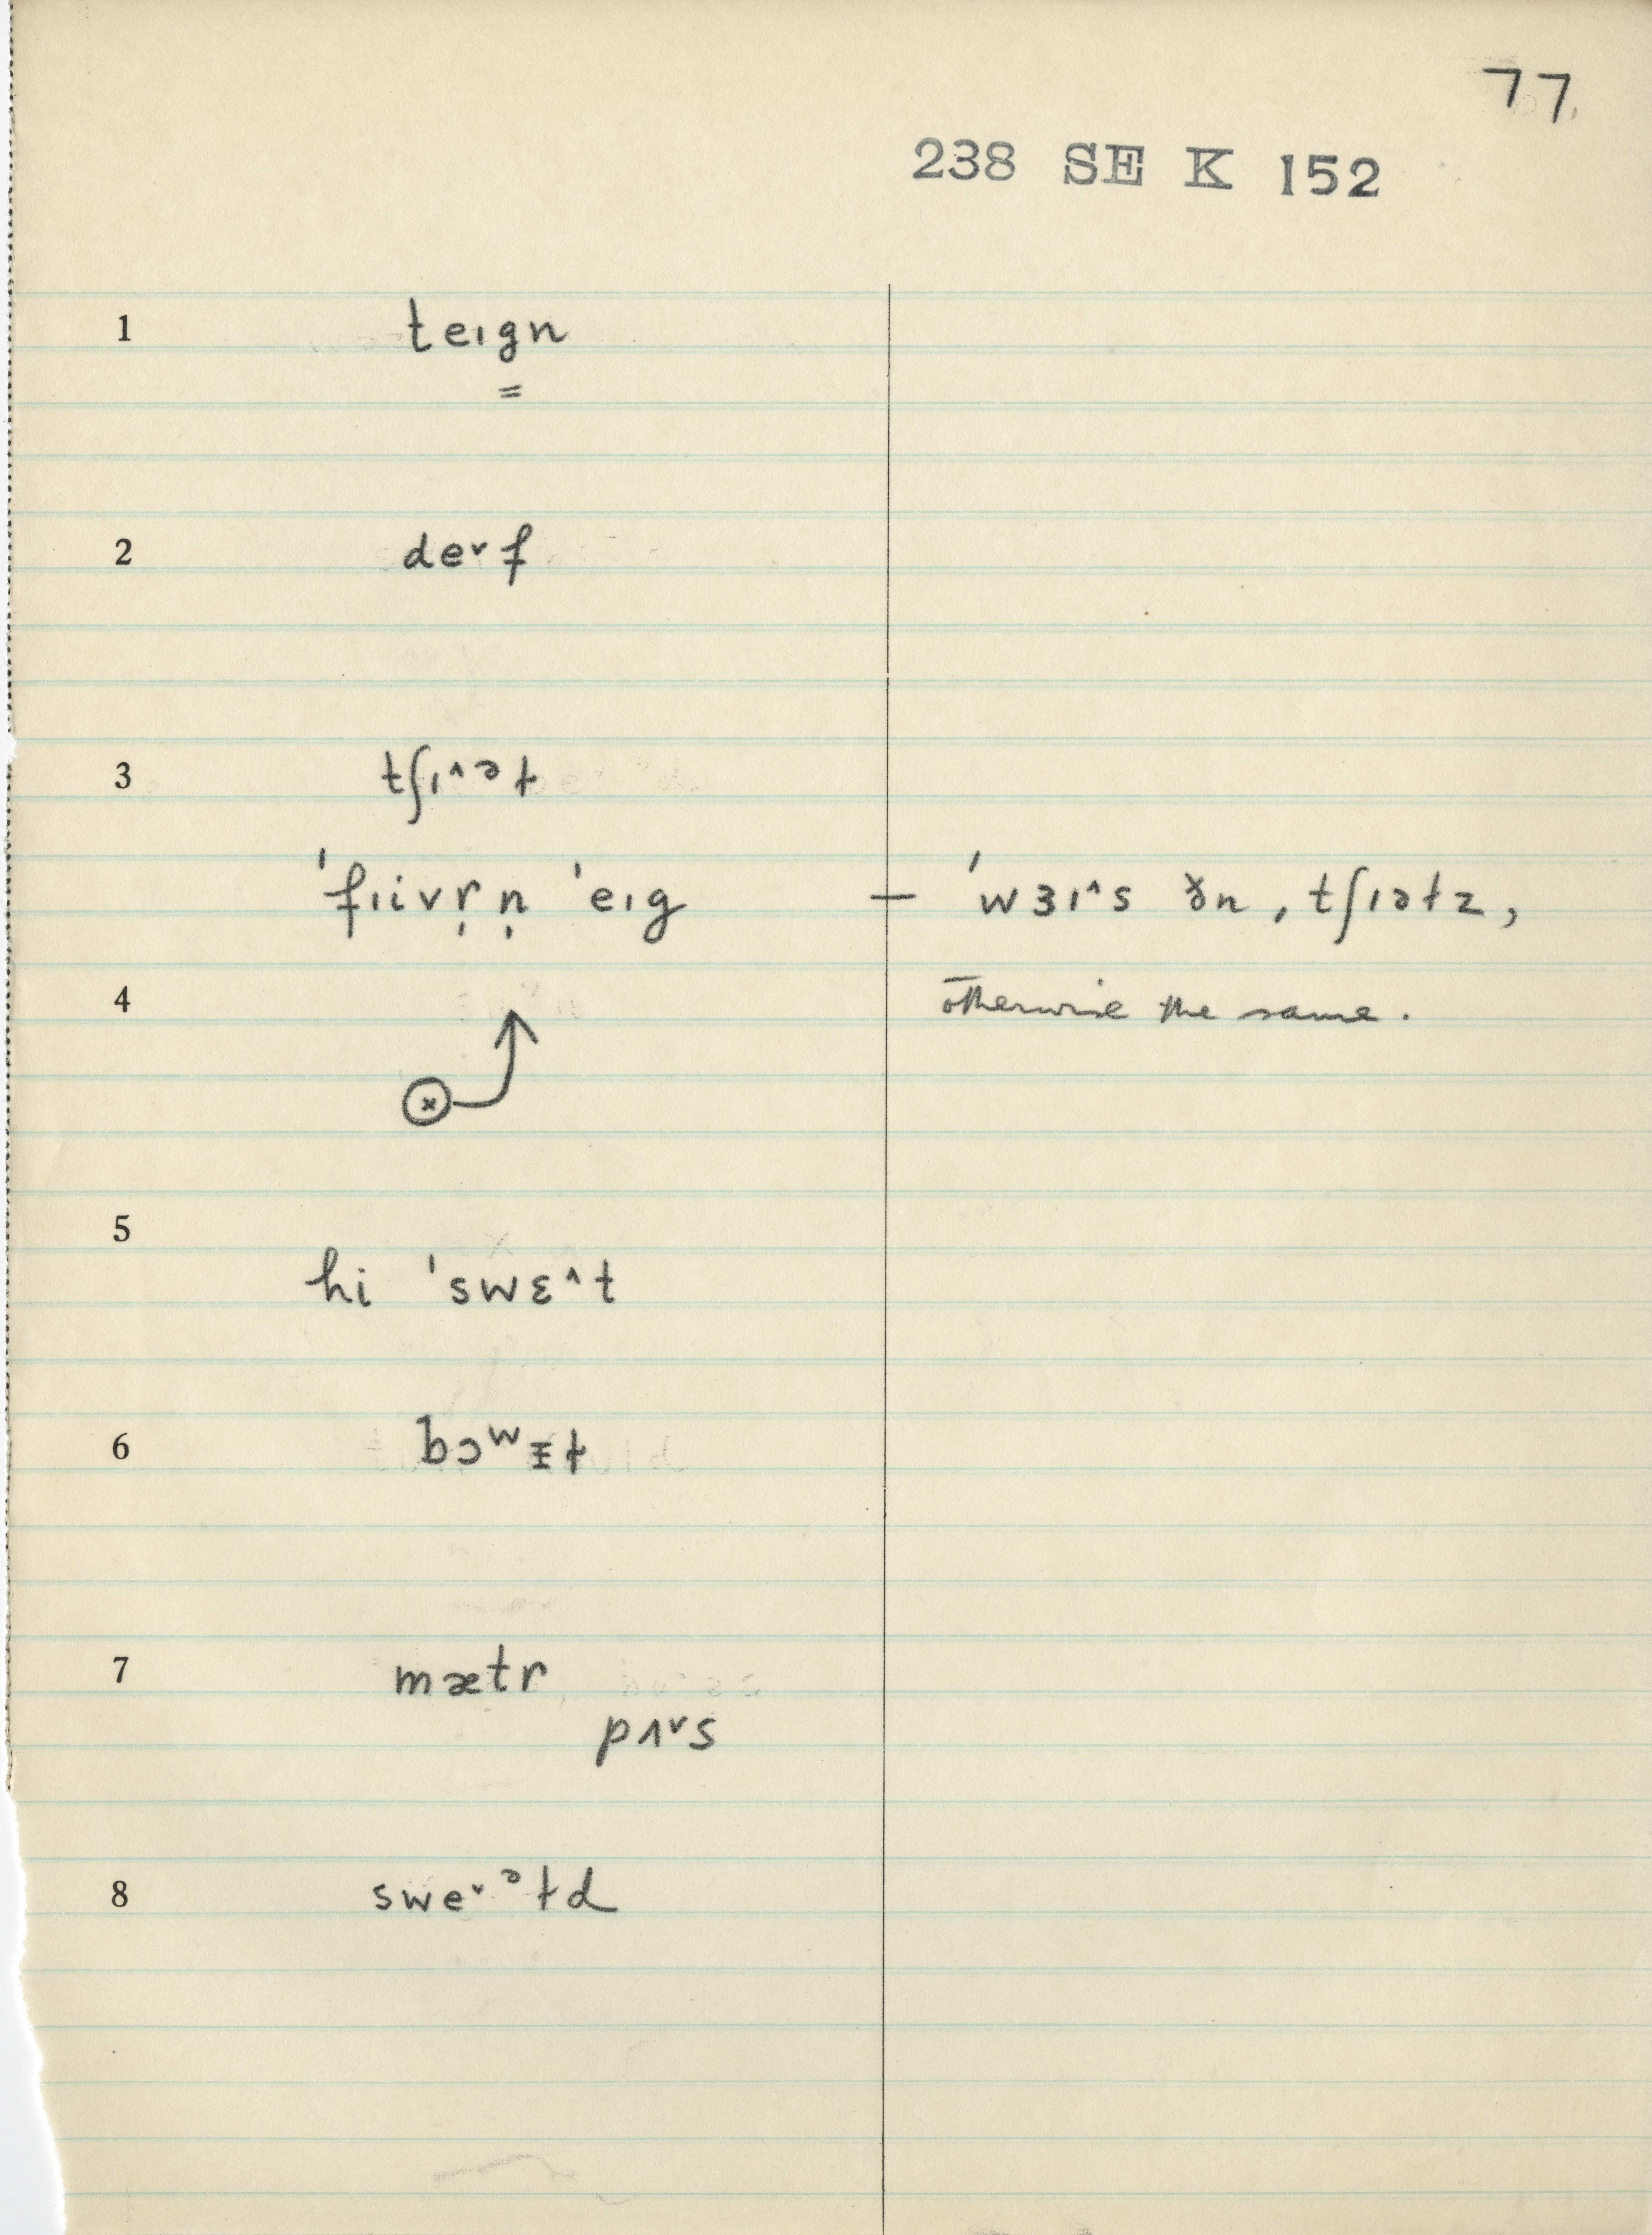 77
238 SE K 152
1 teɪgn
=
2 de˅f
3 tʃɪ^əɫ
4 'fɪivr̩n̩ 'eɪg — 'wɜɪ^s ðn, tʃɪəɫz,
otherwise the same.
x
5 hi 'swɛ^t
6 bɔʷᵻɫ
7 mætr
pʌ˅s
8 swe˅ᵊɫd